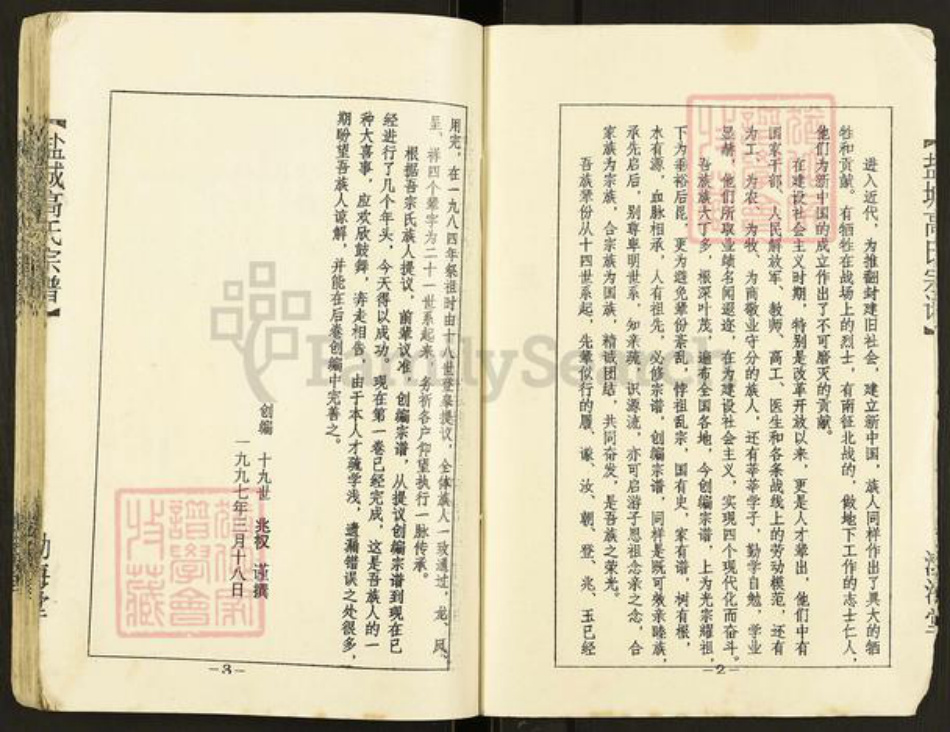 【盐城高氏宗谱】
进入近代，为推翻封建旧社会，建立新中国，族人同样作出了具大的牺
牲和贡献。有牺牲在战场上的烈士，有南征北战的，做地下工作的志士仁人，
他们为新中国的成立作出了不可磨灭的贡献。
在建设社会主义时期，特别是改革开放以来，更是人才辈出，他们中有
国家干部、人民解放军、教师、高工、医生和各条战线上的劳动模范，还有
为工、为农、为牧、为商敬业守分的族人，还有莘莘学子，勤学自勉，学业
显赫，他们所取业绩名闻遐迩，在为建设社会主义，实现四个现代化而奋斗。
吾族族大丁多，根深叶茂，遍布全国各地，今创编宗谱，上为光宗耀祖，
下为垂裕后昆，更为避免辈份紊乱，悖祖乱宗，国有史，家有谱，树有根，
水有源，血脉相承，人有祖先，必修宗谱，创编宗谱，同样是既可敦亲睦族，
承先启后，别尊卑明世系，知亲疏，识源流，亦可启游子思祖念亲之念，合
家族为宗族，合宗族为国族，精诚团结，共同奋发，是吾族之荣光。
吾族辈份从十四世系起，先辈似行的履、谦、汝、朝、登、兆、玉已经
渤海堂
—2—
用完，在一九八四年祭祖时由十八世登举提议，全体族人一致通过，龙、凤、
呈、祥四个辈字为二十一世系起来，务祈各户仰望执行一脉传承。
根据吾宗氏族人提议，前辈议准，创编宗谱，从提议创编宗谱到现在已
经进行了几个年头，今天得以成功。现在第一卷已经完成，这是吾族人的一
种大喜事，应欢欣鼓舞，奔走相告，由于本人才疏学浅，遗漏错误之处很多，
期盼望吾族人谅解，并能在后卷创编中完善之。
创编 十九世 兆权 谨撰
一九九七年三月十八日
—3—
【盐城高氏宗谱】
渤海堂
FamilySearch